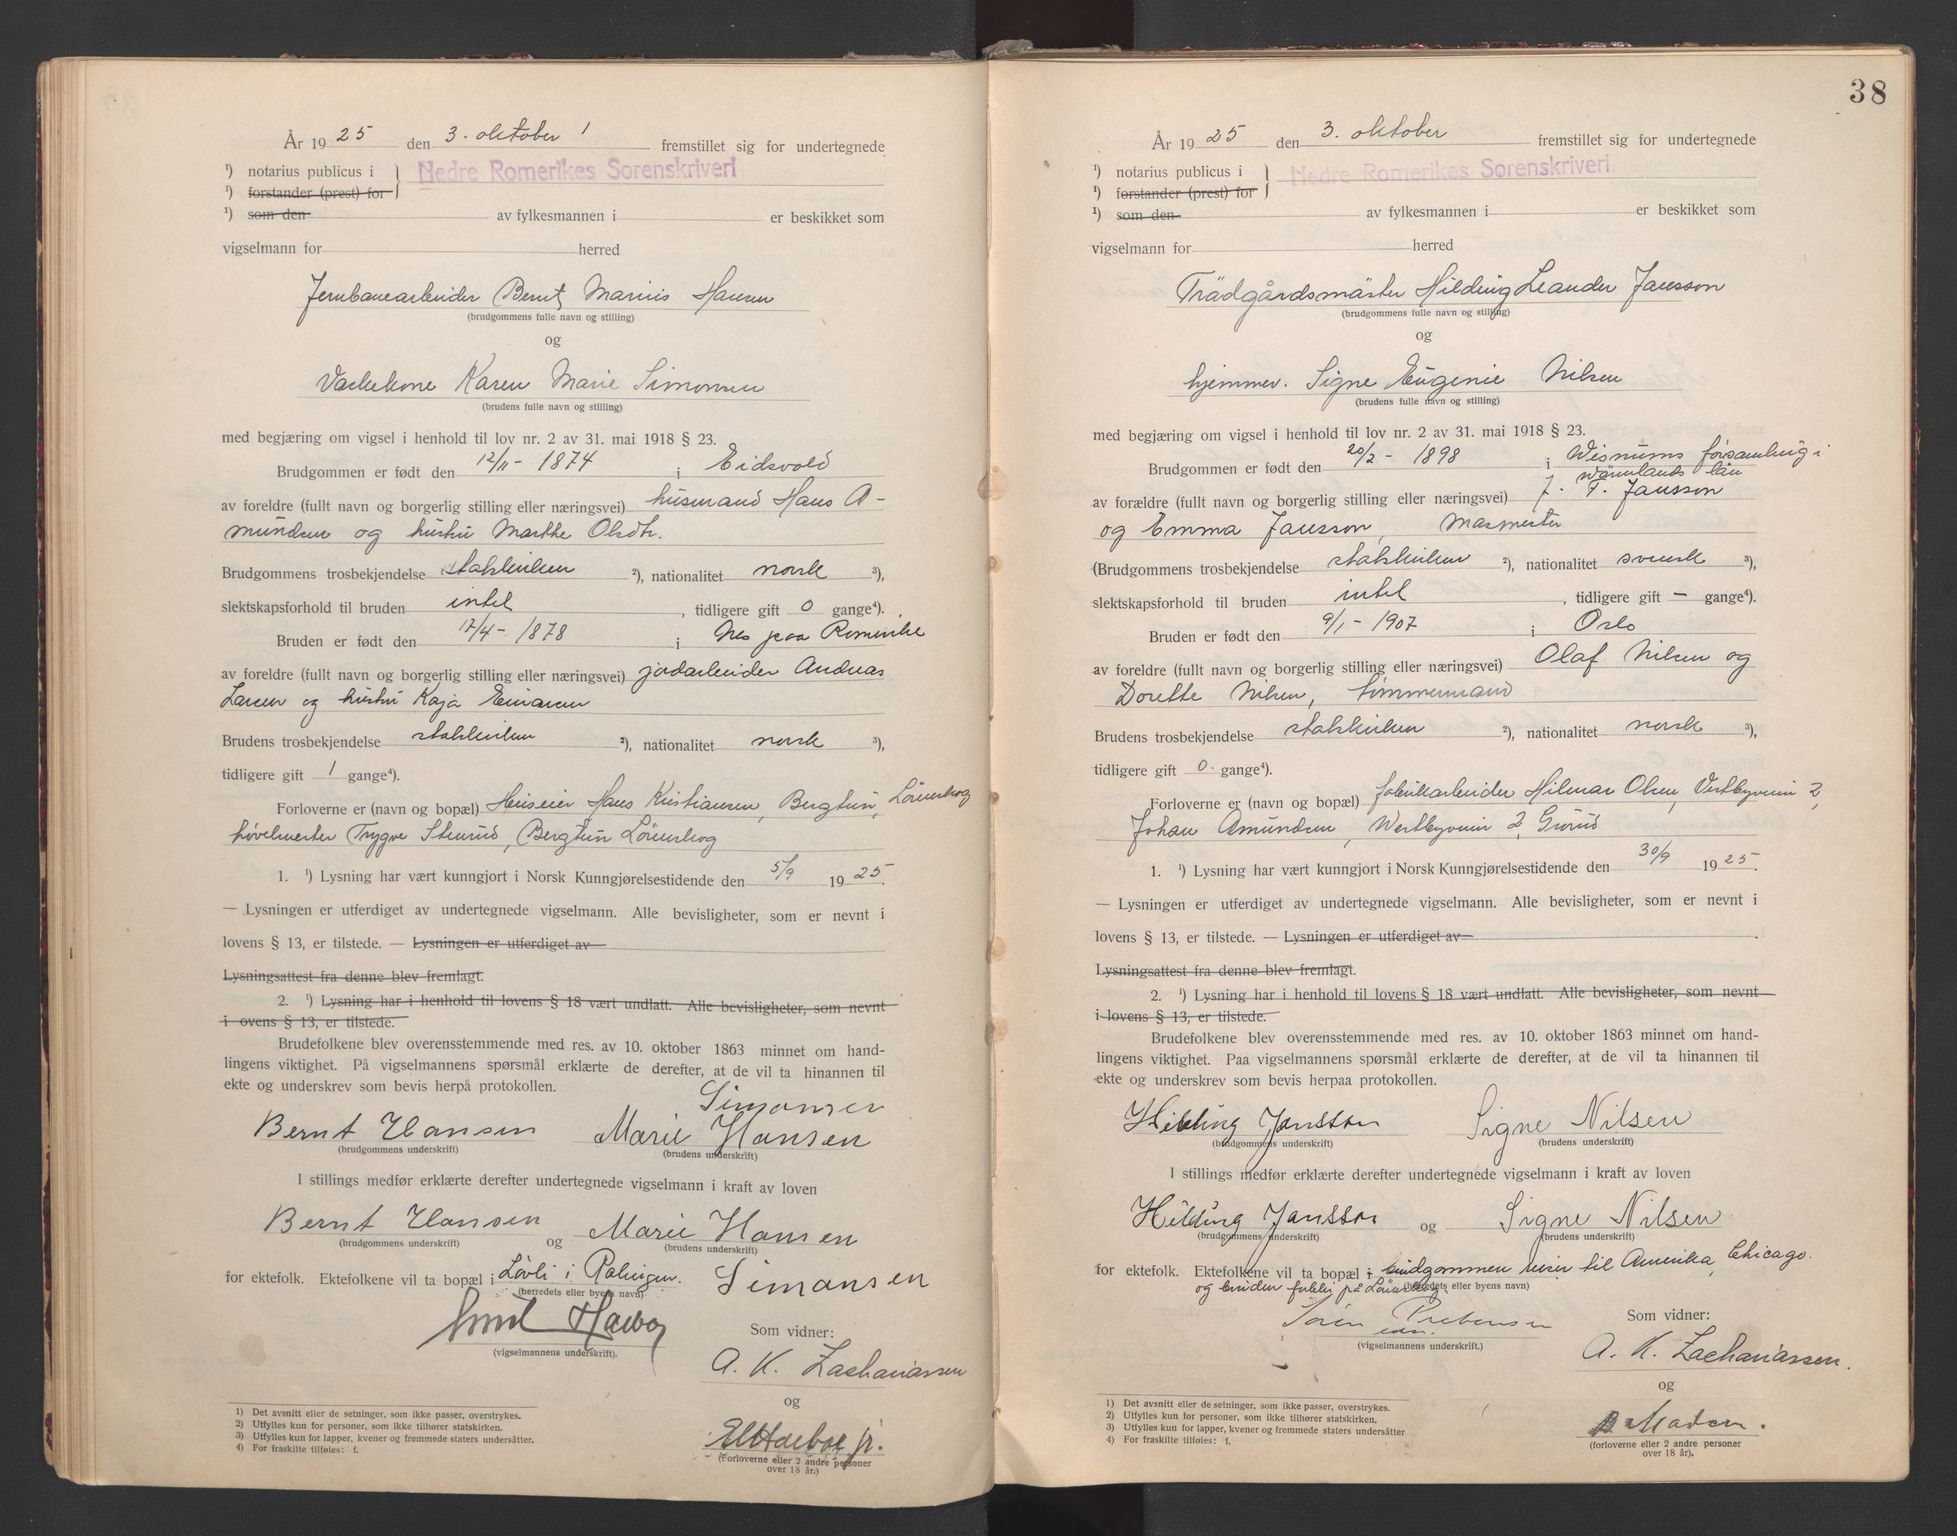 År 1925 den 3. oktober 1 fremstillet sig for undertegnede
¹) notarius publicus i } Nedre Romerikes Sorenskriveri
¹) forstander (prest) for
¹) som den av fylkesmannen i er beskikket som
vigselmann for herred
Jernbanearbeider Bernt Marius Hansen
(brudgommens fulle navn og stilling)
og
Vaskekone Karen Marie Simonsen
(brudens fulle navn og stilling)
med begjæring om vigsel i henhold til lov nr. 2 av 31. mai 1918 § 23.
Brudgommen er født den 12/11 - 1874 i Eidsvold
av foreldre (fullt navn og borgerlig stilling eller næringsvei) husmand Hans A-
mundsen og hustru Marthe Olsdtr.
Brudgommens trosbekjendelse statskirken ²), nationalitet norsk ³),
slektskapsforhold til bruden intet, tidligere gift 0 gange⁴).
Bruden er født den 17/4 - 1878 i Nes paa Romerike
av foreldre (fullt navn og borgerlig stilling eller næringsvei) jordarbeider Andreas
Larsen og hustru Kaja Einarsen
Brudens trosbekjendelse statskirken ²), nationalitet norsk ³),
tidligere gift 1 gange⁴).
Forloverne er (navn og bopæl) Huseier Hans Kristiansen, Bergtun, Lörenskog
hövelmester Trygve Stenrud, Bergtun Lörenskog
1. ¹) Lysning har vært kunngjort i Norsk Kunngjørelsestidende den 5/9 1925.
— Lysningen er utferdiget av undertegnede vigselmann. Alle bevisligheter, som er nevnt i
lovens § 13, er tilstede. — Lysningen er utferdiget av
Lysningsattest fra denne blev fremlagt.
2. ¹) Lysning har i henhold til lovens § 18 vært undlatt. Alle bevisligheter, som nevnt
i ovens § 13, er tilstede.
Brudefolkene blev overensstemmende med res. av 10. oktober 1863 minnet om hand-
lingens viktighet. På vigselmannens spørsmål erklærte de derefter, at de vil ta hinannen til
ekte og underskrev som bevis herpå protokollen.
Simonsen
Bernt Hansen Marie Hansen
(brudgommens underskrift) (brudens underskrift)
I stillings medfør erklærte derefter undertegnede vigselmann i kraft av loven
Bernt Hansen og Marie Hansen
(brudgommens underskrift) (brudens underskrift)
for ektefolk. Ektefolkene vil ta bopæl i Lövli i Rælingen. Simonsen
(herredets eller byens navn)
(vigselmannens underskrift).
Som vidner:
A. K. Zachariassen
og
jr.
(Forloverne eller 2 andre personer
over 18 år.)
1) Det avsnitt eller de setninger, som ikke passer, overstrykes.
2) Utfylles kun for personer, som ikke tilhører statskirken.
3) Utfylles kun for lapper, kvener og fremmede staters undersåtter.
4) For fraskilte tilføies: f.
38
År 1925 den 3. oktober fremstillet sig for undertegnede
¹) notarius publicus i } Nedre Romerikes Sorenskriveri
¹) forstander (prest) for
¹) som den av fylkesmannen i er beskikket som
vigselmann for herred
Trädgårdsmäster Hilding Leander Jansson
(brudgommens fulle navn og stilling)
og
hjemmev. Signe Eugenie Nilsen
(brudens fulle navn og stilling)
med begjæring om vigsel i henhold til lov nr. 2 av 31. mai 1918 § 23.
Brudgommen er født den 20/2 - 1898 i Wisnums församling i
Wärmlands län
av forældre (fullt navn og borgerlig stilling eller næringsvei) J. F. Jansson
og Emma Jansson, Masmester
(Brudgommens trosbekjendelse statskirken ²), nationalitet svensk ³),
slektskapsforhold til bruden intet, tidligere gift — gange⁴).
Bruden er født den 9/1 - 1907 i Oslo
av foreldre (fullt navn og borgerlig stilling eller næringsvei) Olaf Nilsen og
Dorette Nilsen, tömmermand
Brudens trosbekjendelse statskirken ²), nationalitet norsk ³),
tidligere gift 0. gange⁴).
Forloverne er (navn og bopæl) fabrikarbeider Hilmar Olsen, Vestbyveien 2,
Johan Amundsen, Westbyveien 2, Grorud
1. ¹) Lysning har vært kunngjort i Norsk Kunngjørelsestidende den 30/9 1925.
— Lysningen er utferdiget av undertegnede vigselmann. Alle bevisligheter, som er nevnt i
lovens § 13, er tilstede. — Lysningen er utferdiget av
Lysningsattest fra denne blev fremlagt.
2. ¹) Lysning har i henhold til lovens § 18 vært undlatt. Alle bevisligheter, som nevnt
i lovens § 13, er tilstede.
Brudefolkene blev overensstemmende med res. av 10. oktober 1863 minnet om hand-
lingens viktighet. Paa vigselmannens spørsmål erklærte de derefter, at de vil ta hinannen til
ekte og underskrev som bevis herpaa protokollen.
Hilding Jansson Signe Nilsen
(brudgommens underskrift) (brudens underskrift)
I stillings medfør erklærte derefter undertegnede vigselmann i kraft av loven
Hilding Jansson og Signe Nilsen
(brudgommens underskrift) (brudens underskrift)
for ektefolk. Ektefolkene vil ta bopæl i brudgommen reiser til Amerika, Chicago.
og bruden forblir på Lörenskog. (herredets eller byens navn)
Sören Prebensen
edsv.
(vigselmannens underskrift.)
Som vidner:
A. K. Zachariassen.
og
B Madsen.
(forloverne eller 2 andre personer
over 18 år).
1) Det avsnitt eller de setninger, som ikke passer, overstrykes.
2) Utfylles kun for personer, som ikke tilhører statskirken.
3) Utfylles kun for lapper, kvener og fremmede staters undersåtter
4) For fraskilte tilføies: f.